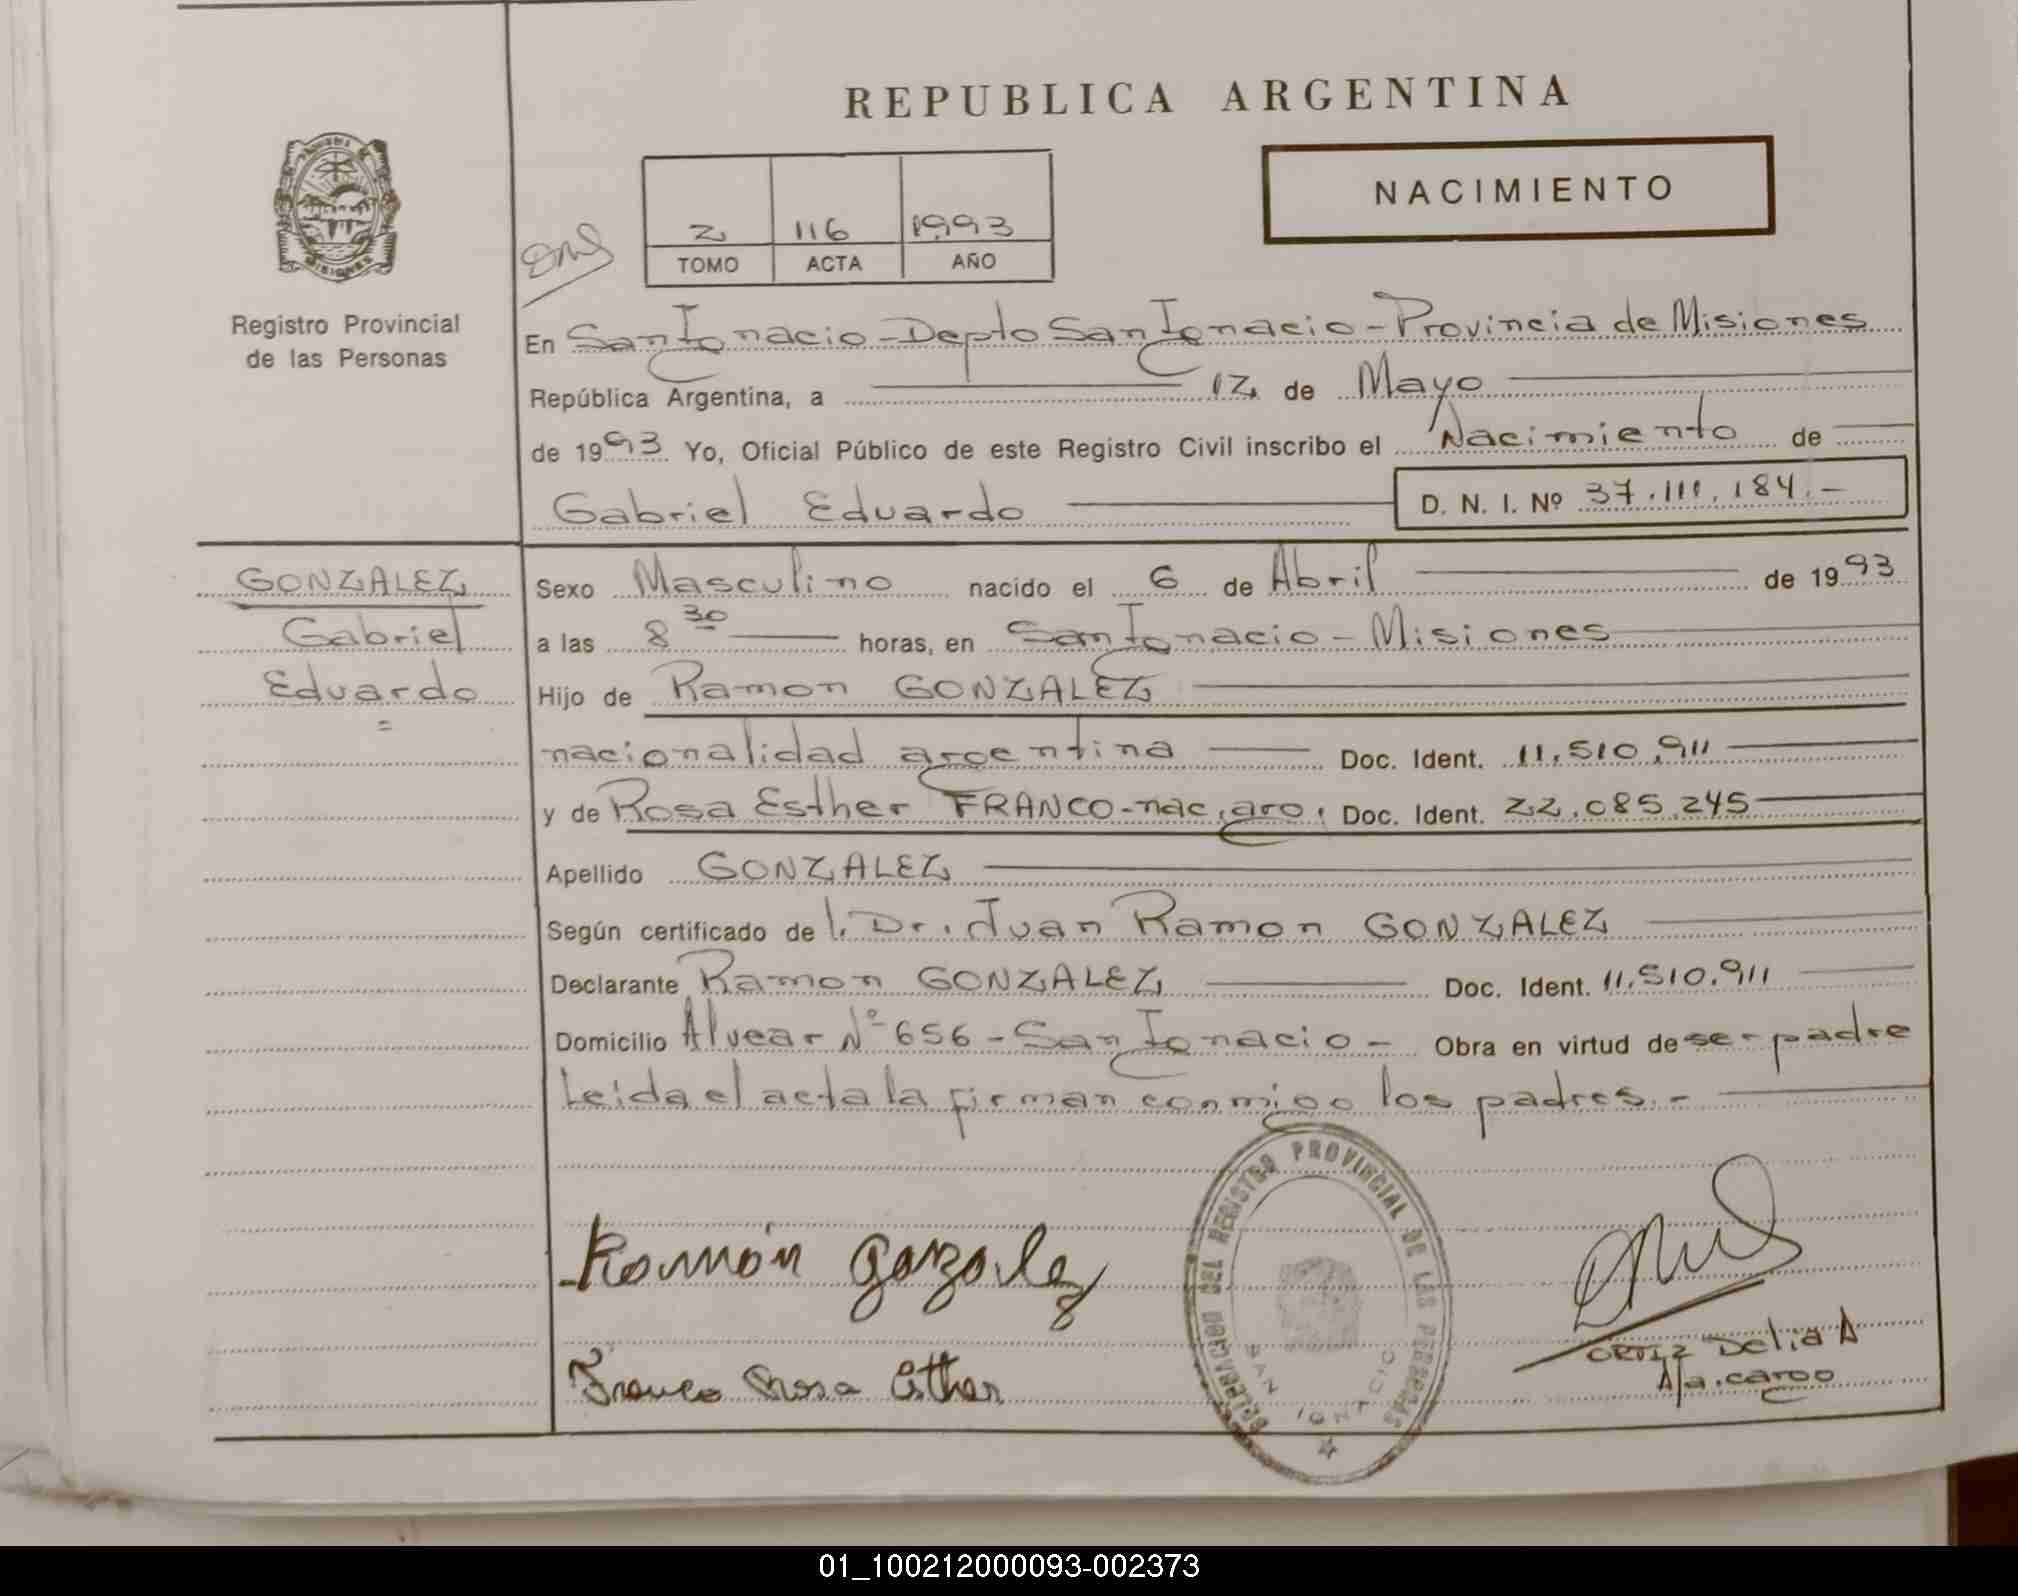 REPUBLICA ARGENTINA
NACIMIENTO
2 116 1993
TOMO ACTA AÑO
MISIONES
Registro Provincial
de las Personas
En San Ignacio - Depto San Ignacio - Provincia de Misiones
República Argentina, a 12 de Mayo
de 1993 Yo, Oficial Público de este Registro Civil inscribo el Nacimiento de
Gabriel Eduardo D. N. I. Nº 37.111.184.-
GONZALEZ
Gabriel
Eduardo
=
Sexo Masculino nacido el 6 de Abril de 1993
a las 8 30 horas, en San Ignacio - Misiones
Hijo de Ramon GONZALEZ
nacionalidad argentina Doc. Ident. 11.510.911
y de Rosa Esther FRANCO - nac. arg. Doc. Ident. 22.085.245
Apellido GONZALEZ
Según certificado de l. Dr. Juan Ramon GONZALEZ
Declarante Ramon GONZALEZ Doc. Ident. 11.510.911
Domicilio Alvear Nº 656 - San Ignacio - Obra en virtud de ser padre
Leida el acta la firman conmigo los padres. -
Ramón Gonzalez
Franco Rosa Esther
DELEGACION DEL REGISTRO PROVINCIAL DE LAS PERSONAS
SAN IGNACIO
ORTIZ Delia A
A/a. cargo
01_100212000093-002373